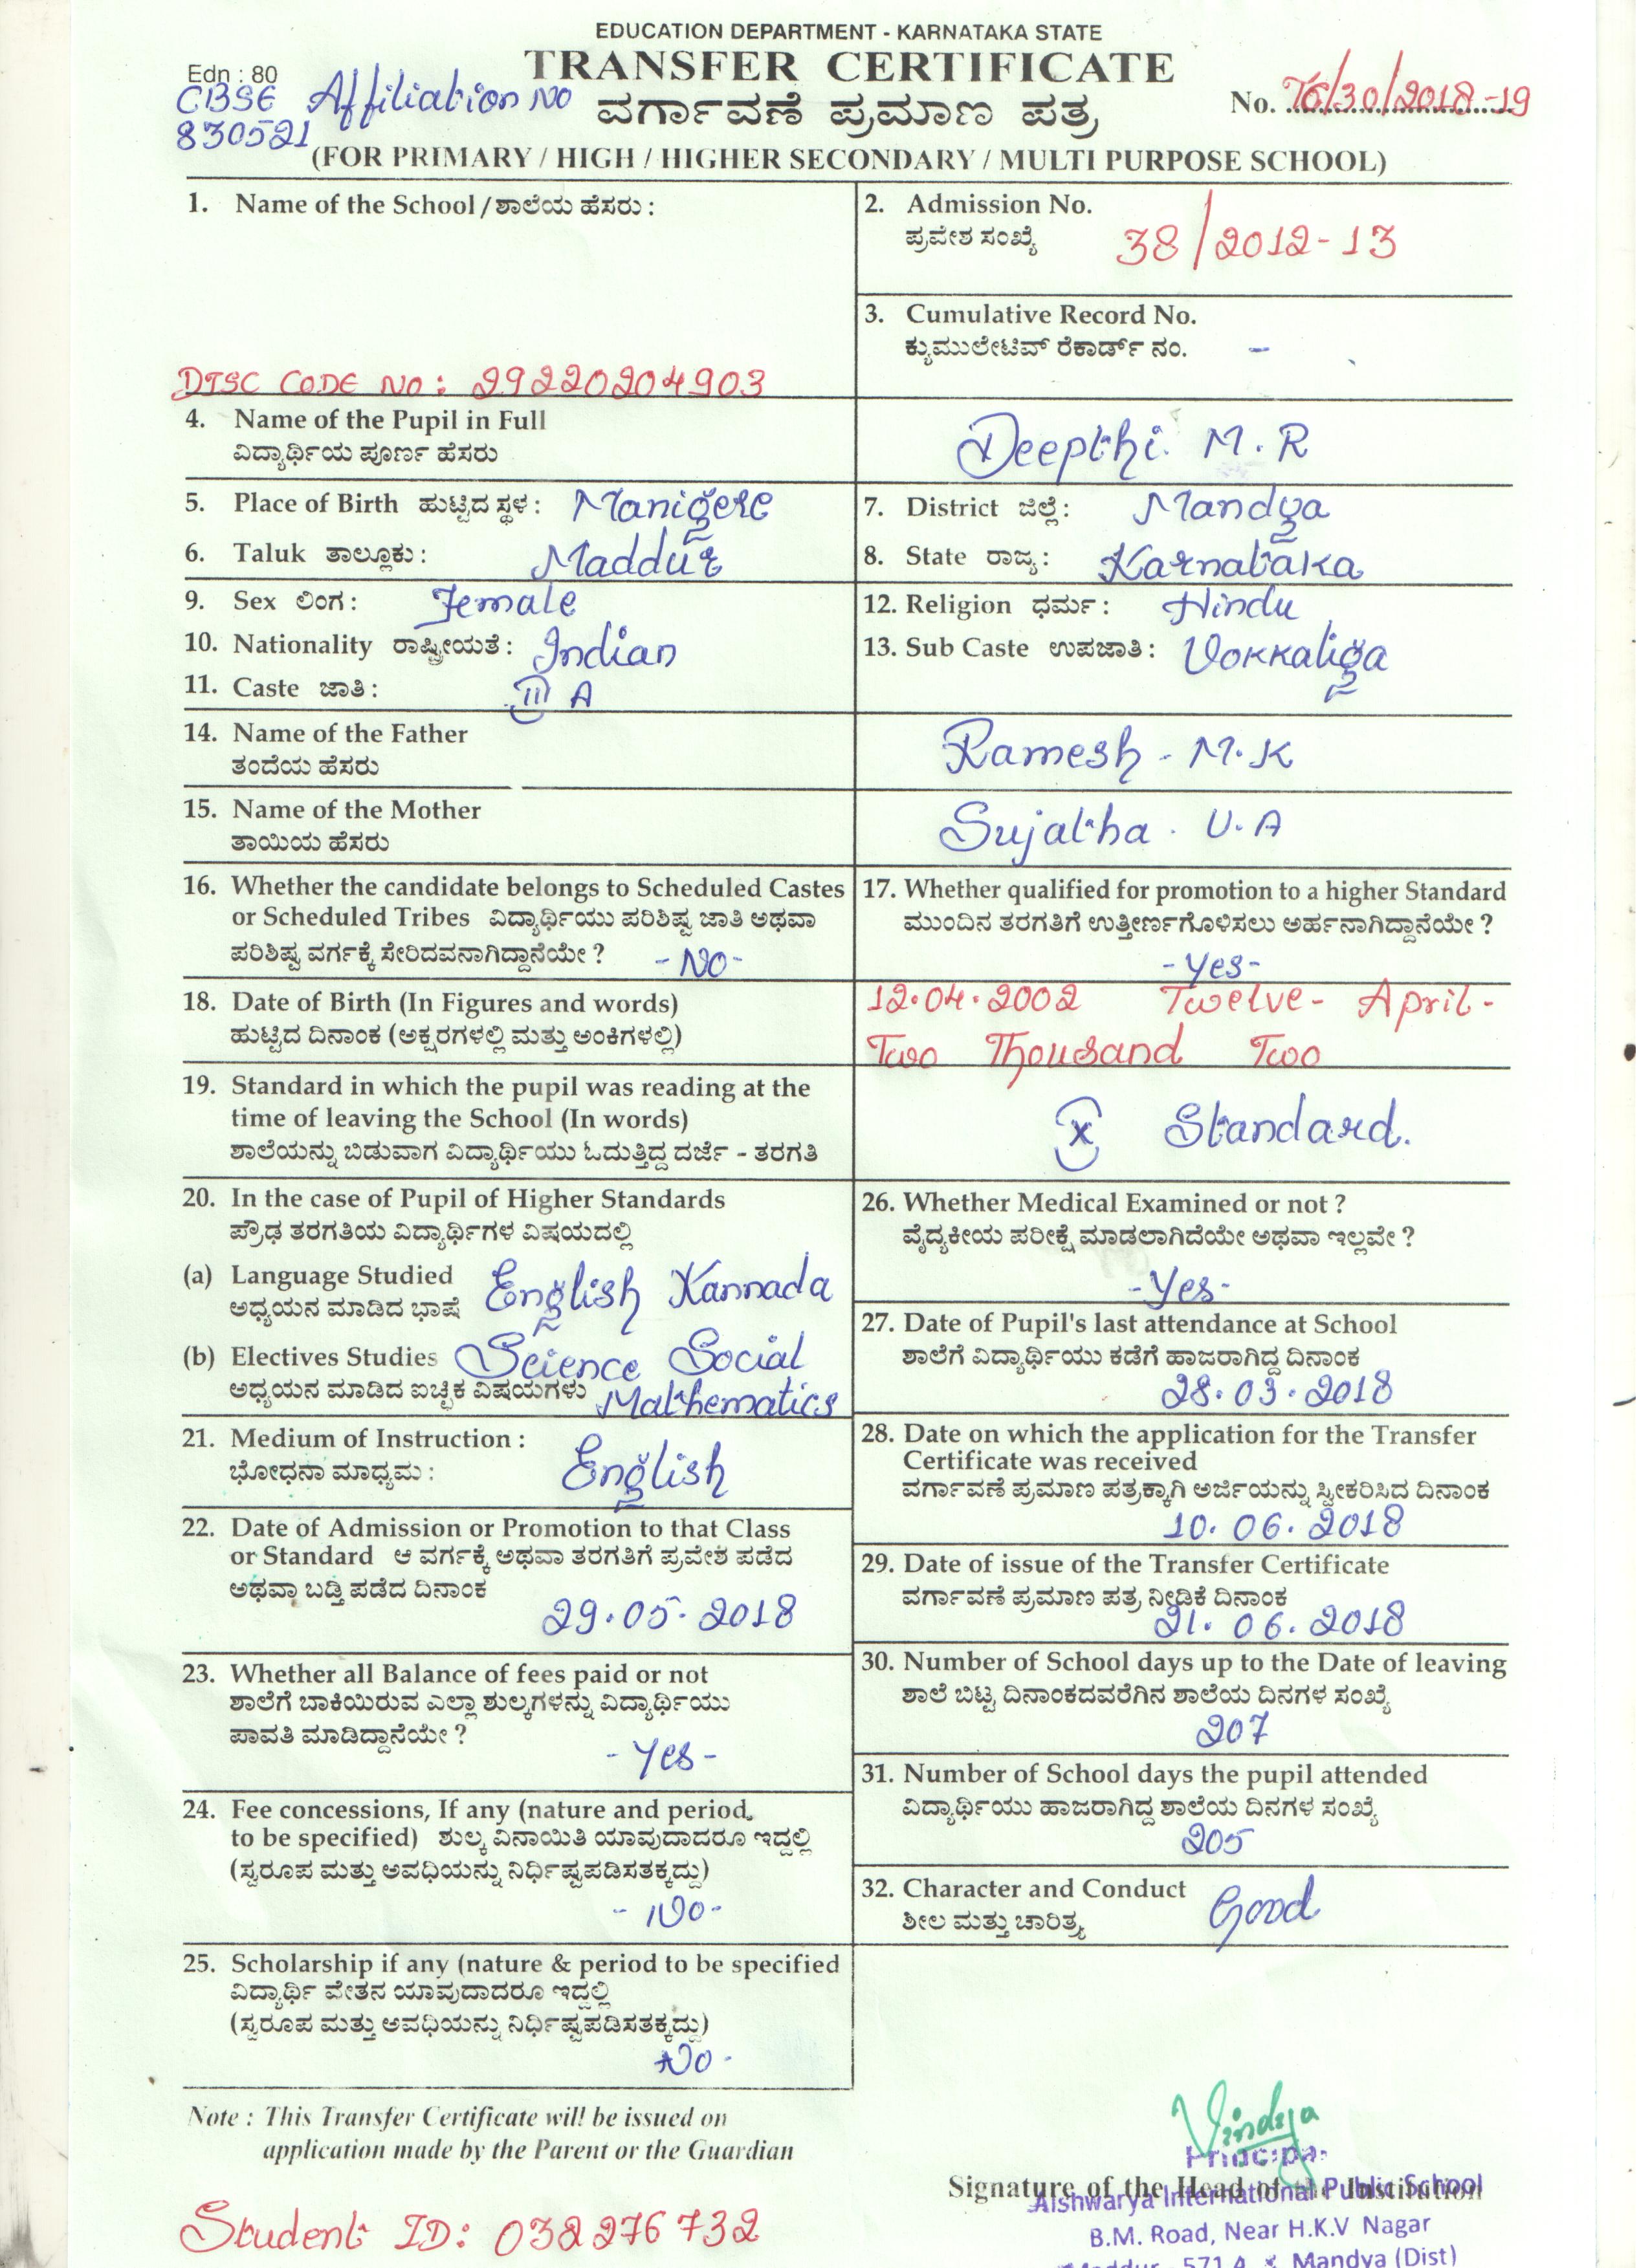 EDUCATION DEPARTMENT - KARNATAKA STATE
TRANSFER CERTIFICATE
Edn : 80
CBSE Affiliation No
830521
ವರ್ಗಾವಣೆ ಪ್ರಮಾಣ ಪತ್ರ
No. 76/30/2018-19
(FOR PRIMARY / HIGH / HIGHER SECONDARY / MULTI PURPOSE SCHOOL)
1. Name of the School / ಶಾಲೆಯ ಹೆಸರು :
DISC CODE NO: 29220204903
2. Admission No.
ಪ್ರವೇಶ ಸಂಖ್ಯೆ 38/2012-13
3. Cumulative Record No.
ಕ್ಯುಮುಲೇಟಿವ್ ರೆಕಾರ್ಡ್ ನಂ. -
4. Name of the Pupil in Full
ವಿದ್ಯಾರ್ಥಿಯ ಪೂರ್ಣ ಹೆಸರು
Deepthi. M.R
5. Place of Birth ಹುಟ್ಟಿದ ಸ್ಥಳ : Manigere
6. Taluk ತಾಲ್ಲೂಕು : Maddur
7. District ಜಿಲ್ಲೆ : Mandya
8. State ರಾಜ್ಯ : Karnataka
9. Sex ಲಿಂಗ : Female
10. Nationality ರಾಷ್ಟ್ರೀಯತೆ : Indian
11. Caste ಜಾತಿ : III A
12. Religion ಧರ್ಮ : Hindu
13. Sub Caste ಉಪಜಾತಿ : Vokkaliga
14. Name of the Father
ತಂದೆಯ ಹೆಸರು
Ramesh - M.K
15. Name of the Mother
ತಾಯಿಯ ಹೆಸರು
Sujatha . U.A
16. Whether the candidate belongs to Scheduled Castes
or Scheduled Tribes ವಿದ್ಯಾರ್ಥಿಯು ಪರಿಶಿಷ್ಟ ಜಾತಿ ಅಥವಾ
ಪರಿಶಿಷ್ಟ ವರ್ಗಕ್ಕೆ ಸೇರಿದವನಾಗಿದ್ದಾನೆಯೇ ? - No -
17. Whether qualified for promotion to a higher Standard
ಮುಂದಿನ ತರಗತಿಗೆ ಉತ್ತೀರ್ಣಗೊಳಿಸಲು ಅರ್ಹನಾಗಿದ್ದಾನೆಯೇ ?
- Yes -
18. Date of Birth (In Figures and words)
ಹುಟ್ಟಿದ ದಿನಾಂಕ (ಅಕ್ಷರಗಳಲ್ಲಿ ಮತ್ತು ಅಂಕಿಗಳಲ್ಲಿ)
12.04.2002 Twelve - April -
Two Thousand Two
19. Standard in which the pupil was reading at the
time of leaving the School (In words)
ಶಾಲೆಯನ್ನು ಬಿಡುವಾಗ ವಿದ್ಯಾರ್ಥಿಯು ಓದುತ್ತಿದ್ದ ದರ್ಜೆ - ತರಗತಿ
X Standard.
20. In the case of Pupil of Higher Standards
ಪ್ರೌಢ ತರಗತಿಯ ವಿದ್ಯಾರ್ಥಿಗಳ ವಿಷಯದಲ್ಲಿ
(a) Language Studied English Kannada
ಅಧ್ಯಯನ ಮಾಡಿದ ಭಾಷೆ
(b) Electives Studies Science Social
ಅಧ್ಯಯನ ಮಾಡಿದ ಐಚ್ಛಿಕ ವಿಷಯಗಳು Mathematics
21. Medium of Instruction :
ಭೋಧನಾ ಮಾಧ್ಯಮ : English
22. Date of Admission or Promotion to that Class
or Standard ಆ ವರ್ಗಕ್ಕೆ ಅಥವಾ ತರಗತಿಗೆ ಪ್ರವೇಶ ಪಡೆದ
ಅಥವಾ ಬಡ್ತಿ ಪಡೆದ ದಿನಾಂಕ
29.05.2018
23. Whether all Balance of fees paid or not
ಶಾಲೆಗೆ ಬಾಕಿಯಿರುವ ಎಲ್ಲಾ ಶುಲ್ಕಗಳನ್ನು ವಿದ್ಯಾರ್ಥಿಯು
ಪಾವತಿ ಮಾಡಿದ್ದಾನೆಯೇ ?
- Yes -
24. Fee concessions, If any (nature and period,
to be specified) ಶುಲ್ಕ ವಿನಾಯಿತಿ ಯಾವುದಾದರೂ ಇದ್ದಲ್ಲಿ
(ಸ್ವರೂಪ ಮತ್ತು ಅವಧಿಯನ್ನು ನಿರ್ಧಿಷ್ಟಪಡಿಸತಕ್ಕದ್ದು)
- No -
25. Scholarship if any (nature & period to be specified
ವಿದ್ಯಾರ್ಥಿ ವೇತನ ಯಾವುದಾದರೂ ಇದ್ದಲ್ಲಿ
(ಸ್ವರೂಪ ಮತ್ತು ಅವಧಿಯನ್ನು ನಿರ್ಧಿಷ್ಟಪಡಿಸತಕ್ಕದ್ದು)
No -
26. Whether Medical Examined or not ?
ವೈದ್ಯಕೀಯ ಪರೀಕ್ಷೆ ಮಾಡಲಾಗಿದೆಯೇ ಅಥವಾ ಇಲ್ಲವೇ ?
- Yes -
27. Date of Pupil's last attendance at School
ಶಾಲೆಗೆ ವಿದ್ಯಾರ್ಥಿಯು ಕಡೆಗೆ ಹಾಜರಾಗಿದ್ದ ದಿನಾಂಕ
28.03.2018
28. Date on which the application for the Transfer
Certificate was received
ವರ್ಗಾವಣೆ ಪ್ರಮಾಣ ಪತ್ರಕ್ಕಾಗಿ ಅರ್ಜಿಯನ್ನು ಸ್ವೀಕರಿಸಿದ ದಿನಾಂಕ
10.06.2018
29. Date of issue of the Transfer Certificate
ವರ್ಗಾವಣೆ ಪ್ರಮಾಣ ಪತ್ರ ನೀಡಿಕೆ ದಿನಾಂಕ
21.06.2018
30. Number of School days up to the Date of leaving
ಶಾಲೆ ಬಿಟ್ಟ ದಿನಾಂಕದವರೆಗಿನ ಶಾಲೆಯ ದಿನಗಳ ಸಂಖ್ಯೆ
207
31. Number of School days the pupil attended
ವಿದ್ಯಾರ್ಥಿಯು ಹಾಜರಾಗಿದ್ದ ಶಾಲೆಯ ದಿನಗಳ ಸಂಖ್ಯೆ
205
32. Character and Conduct Good
ಶೀಲ ಮತ್ತು ಚಾರಿತ್ರ್ಯ
Note : This Transfer Certificate will be issued on
application made by the Parent or the Guardian
Vindya
Principal
Signature of the Head of the Institution
Aishwarya International Public School
B.M. Road, Near H.K.V Nagar
Mandya (Dist)
Student ID: 032276732